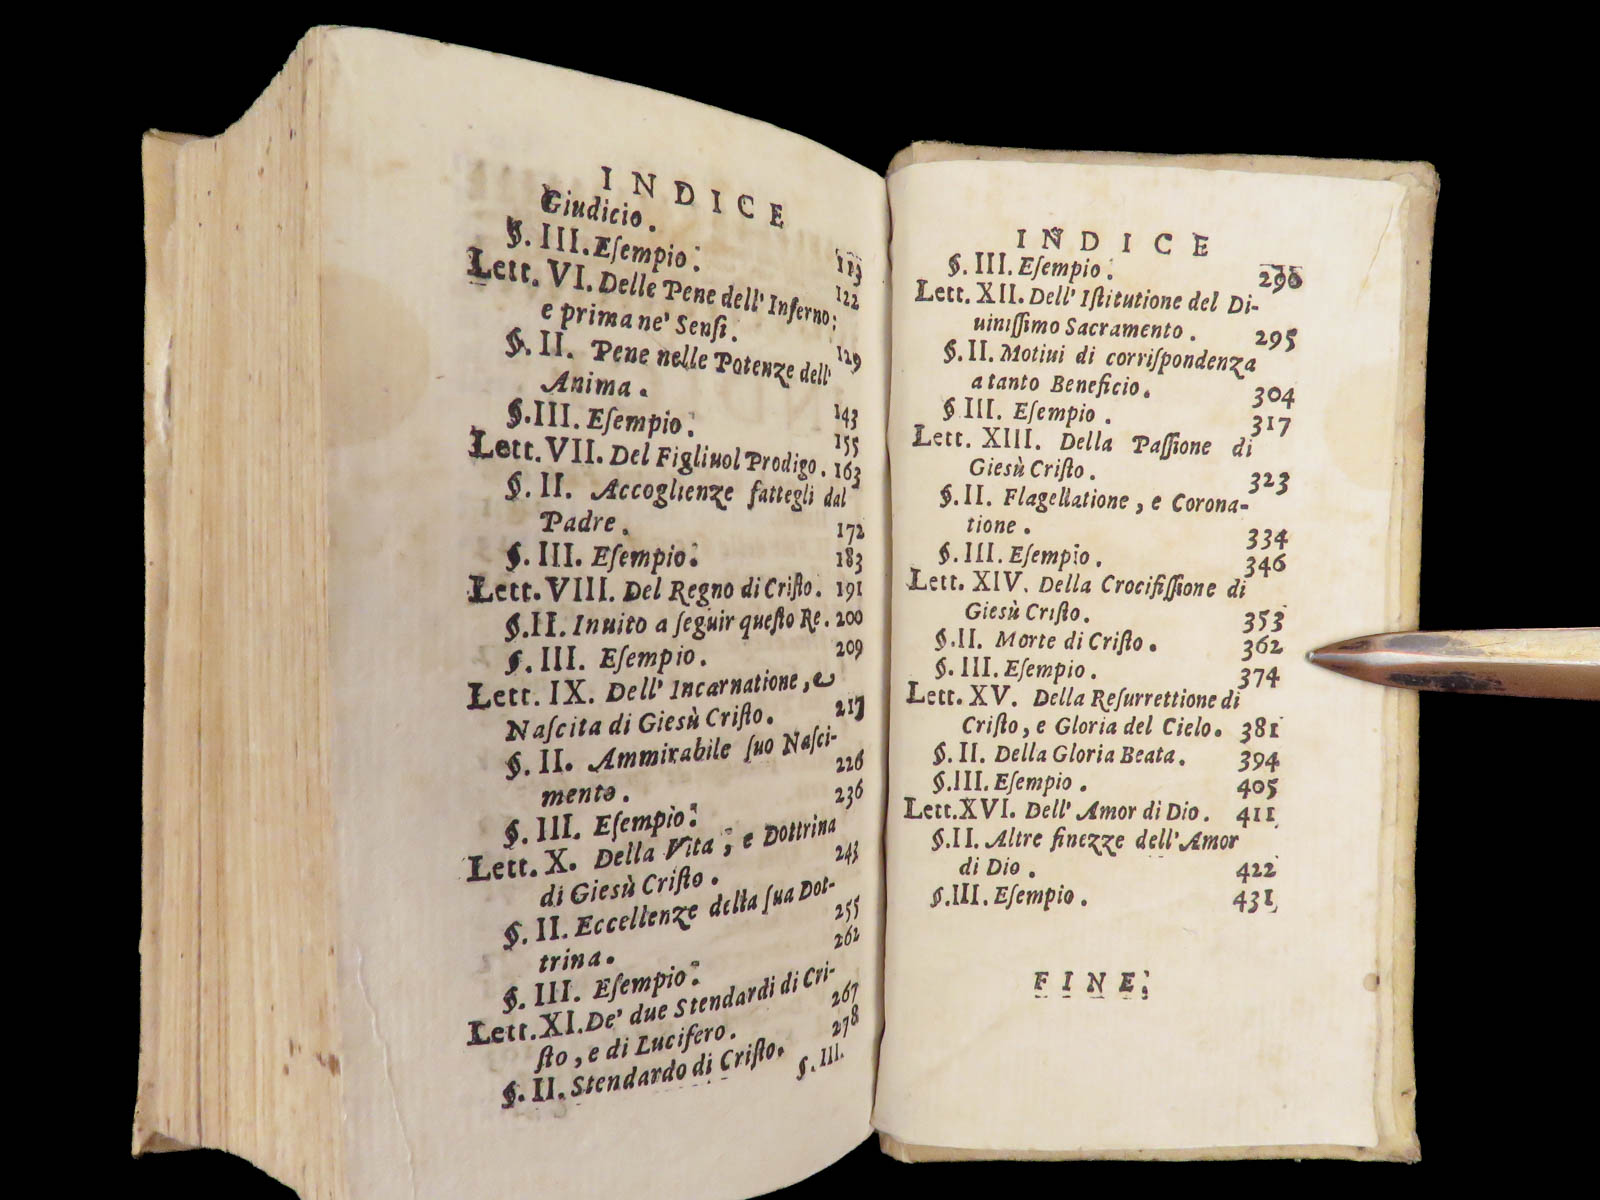 INDICE
Giudicio.
§. III. Eſempio. 113
Lett. VI. Delle Pene dell' Inferno; 122
e prima ne' Senſi.
§. II. Pene nelle Potenze dell' 129
Anima.
§. III. Eſempio. 143
Lett. VII. Del Figliuol Prodigo. 155
§. II. Accoglienze fattegli dal 163
Padre. 172
§. III. Eſempio. 183
Lett. VIII. Del Regno di Criſto. 191
§. II. Inuito a ſeguir queſto Re. 200
§. III. Eſempio. 209
Lett. IX. Dell' Incarnatione, e
Naſcita di Gieſù Criſto. 217
§. II. Ammirabile ſuo Naſci-
mento. 226
§. III. Eſempio. 236
Lett. X. Della Vita, e Dottrina
di Gieſù Criſto. 243
§. II. Eccellenze della ſua Dot-
trina. 255
§. III. Eſempio. 262
Lett. XI. De' due Stendardi di Cri-
ſto, e di Lucifero. 267
§. II. Stendardo di Criſto. 278
§. III.
INDICE
§. III. Eſempio. 290
Lett. XII. Dell' Iſtitutione del Di-
uiniſſimo Sacramento. 295
§. II. Motiui di corriſpondenza
a tanto Beneficio. 304
§ III. Eſempio. 317
Lett. XIII. Della Paſſione di
Gieſù Criſto. 323
§. II. Flagellatione, e Corona-
tione. 334
§. III. Eſempio. 346
Lett. XIV. Della Crocifiſſione di
Gieſù Criſto. 353
§. II. Morte di Criſto. 362
§. III. Eſempio. 374
Lett. XV. Della Reſurrettione di
Criſto, e Gloria del Cielo. 381
§. II. Della Gloria Beata. 394
§. III. Eſempio. 405
Lett. XVI. Dell' Amor di Dio. 411
§. II. Altre finezze dell' Amor
di Dio. 422
§. III. Eſempio. 431
FINE.